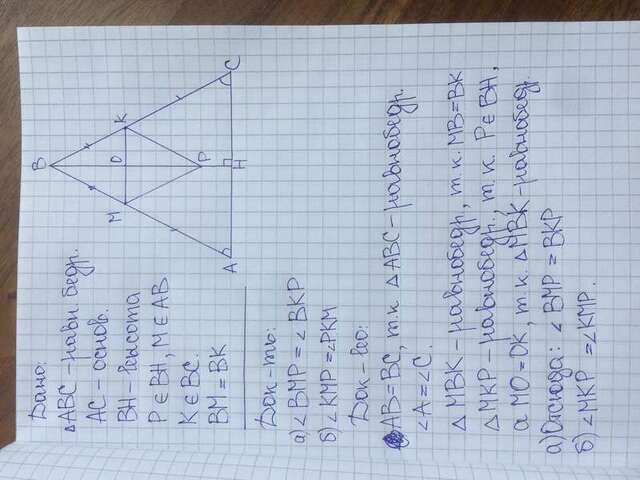 Дано:
△ABC – равн. бедр.
AC – основ.
BH – высота
P ∈ BH, M ∈ AB
K ∈ BC.
BM = BK
B
M
O
K
P
A
H
C
Док-ть:
а) ∠BMP = ∠BKP
б) ∠KMP = ∠PKM
Док-во:
AB = BC, т.к △ABC – равнобедр.
∠A = ∠C.
△MBK – равнобедр., т.к. MB = BK
△MKP – равнобедр., т.к. P ∈ BH,
а MO = OK, т.к. △MBK – равнобедр.
а) Отсюда: ∠BMP = BKP
б) ∠MKP = ∠KMP.